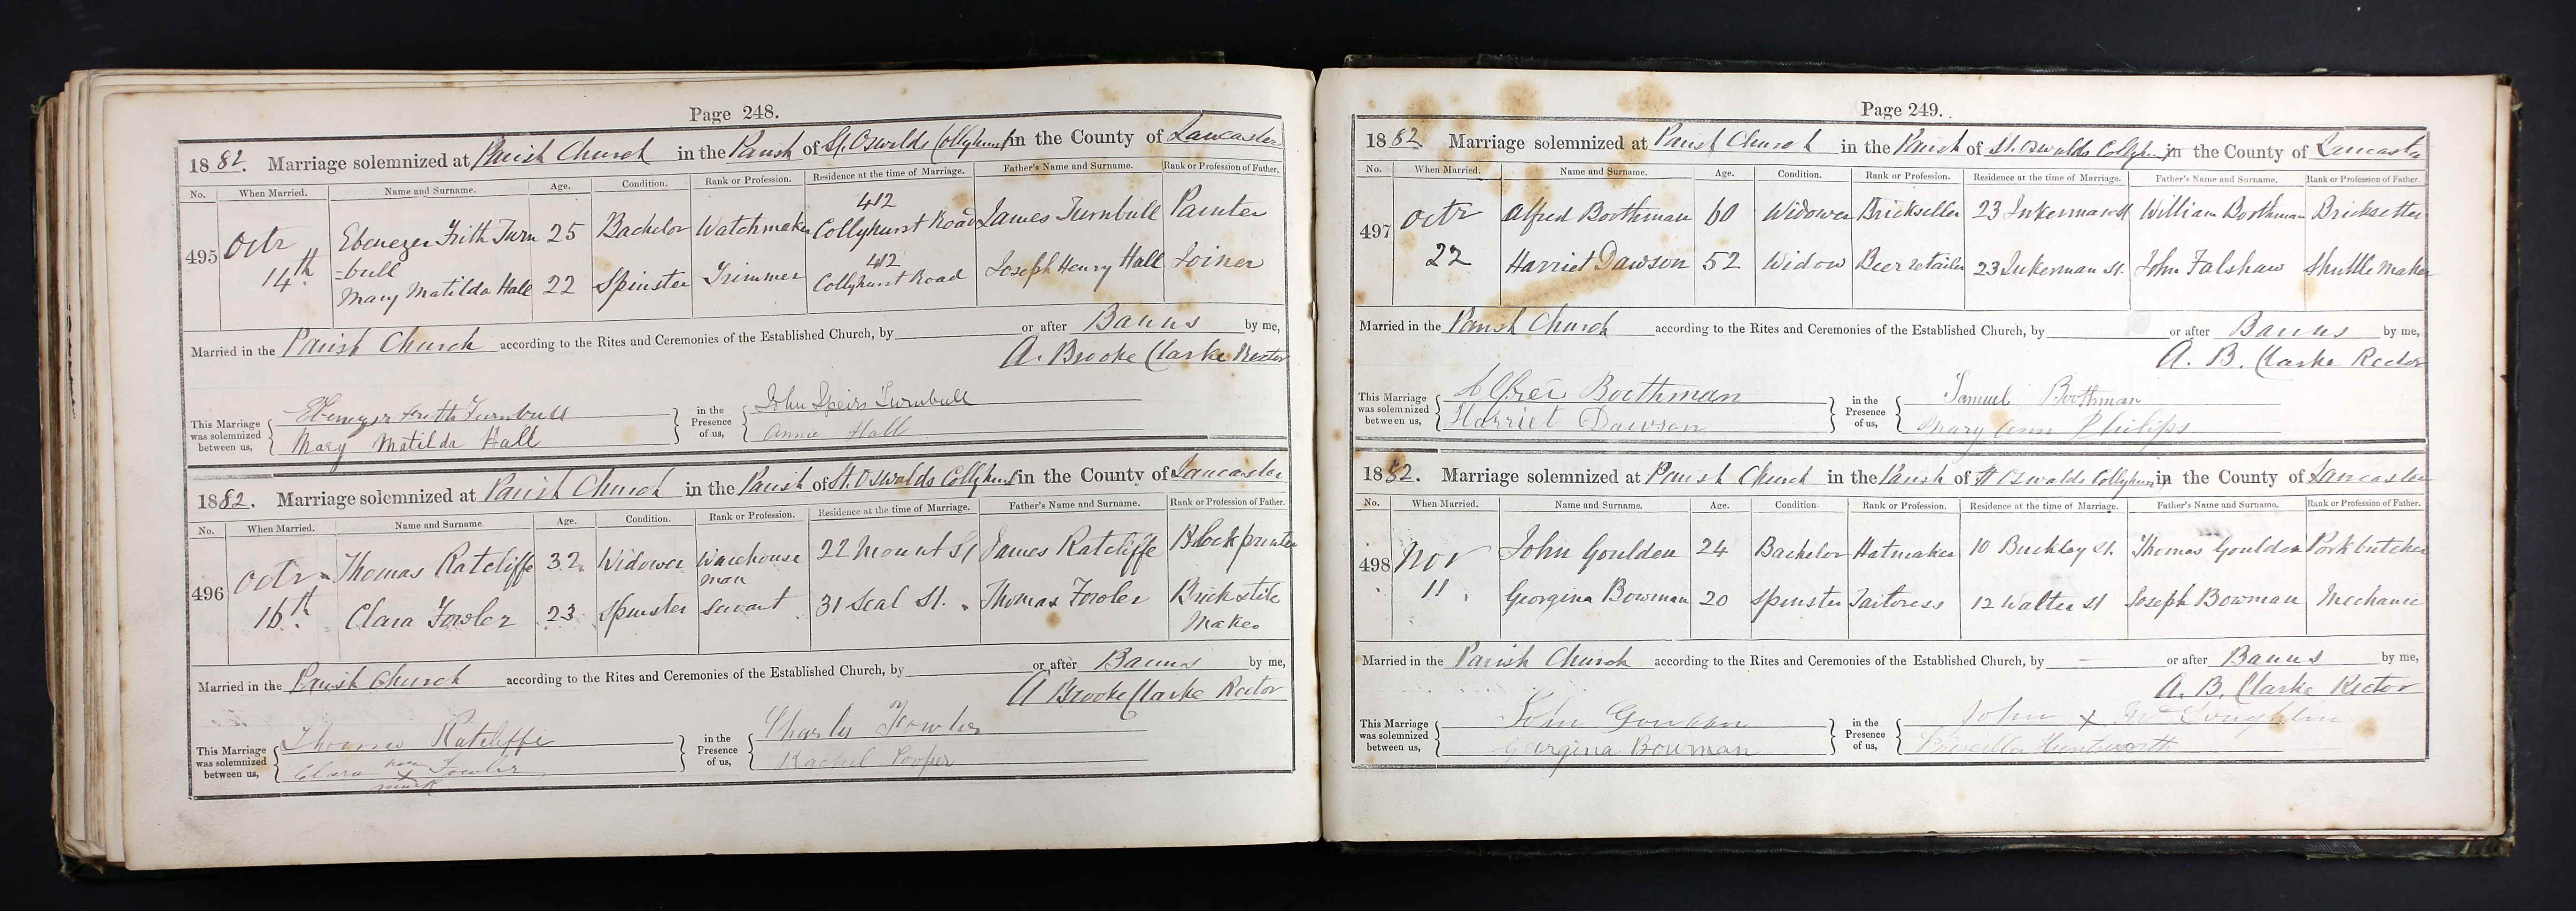 Page 248.
1882. Marriage solemnized at Parish Church in the Parish of St. Oswalds Collyhurst in the County of Lancaster
No. When Married. Name and Surname. Age. Condition. Rank or Profession. Residence at the time of Marriage. Father's Name and Surname. Rank or Profession of Father.
495 Octr 14th. Ebenezer Frith Turn=bull 25 Bachelor Watchmaker 412 Collyhurst Road James Turnbull Painter
Mary Matilda Hall 22 Spinster Trimmer 412 Collyhurst Road Joseph Henry Hall Joiner
Married in the Parish Church according to the Rites and Ceremonies of the Established Church, by or after Banns by me,
A. Brooke Clarke Rector
This Marriage was solemnized between us, Ebenezer Frith Turnbull
Mary Matilda Hall
in the Presence of us, John Speirs Turnbull
Annie Hall
1882. Marriage solemnized at Parish Church in the Parish of St. Oswalds Collyhurst in the County of Lancaster
No. When Married. Name and Surname. Age. Condition. Rank or Profession. Residence at the time of Marriage. Father's Name and Surname. Rank or Profession of Father.
496 Octr 16th. Thomas Ratcliffe 32 Widower Warehouse man 22 Mount St James Ratcliffe Block printer
Clara Fowler 23 Spinster Servant 31 Seal St. Thomas Fowler Brick tile Maker
Married in the Parish Church according to the Rites and Ceremonies of the Established Church, by or after Banns by me,
A Brooke Clarke Rector
This Marriage was solemnized between us, Thomas Ratcliffe
Clara her X Fowler
mark
in the Presence of us, Charles Fowler
Rachel Cooper
Page 249.
1882 Marriage solemnized at Parish Church in the Parish of St. Oswalds Collyhurst in the County of Lancaster
No. When Married. Name and Surname. Age. Condition. Rank or Profession. Residence at the time of Marriage. Father's Name and Surname. Rank or Profession of Father.
497 Octr 22 Alfred Boothman 60 Widower Brickseller 23 Inkerman St William Boothman Bricksetter
Harriet Dawson 52 Widow Beer retailer 23 Inkerman St. John Falshaw Shuttle Maker
Married in the Parish Church according to the Rites and Ceremonies of the Established Church, by or after Banns by me,
A. B. Clarke Rector
This Marriage was solemnized between us, Boothman
Harriet Dawson
in the Presence of us, Samuel Boothman
Mary Ann Philips
1882. Marriage solemnized at Parish Church in the Parish of St Oswalds Collyhurst in the County of Lancaster
No. When Married. Name and Surname. Age. Condition. Rank or Profession. Residence at the time of Marriage. Father's Name and Surname. Rank or Profession of Father.
498 Nov 11. John Goulden 24 Bachelor Hatmaker 10 Buckley St. Thomas Goulden Pork butcher
Georgina Bowman 20 Spinster Tailoress 12 Walter St Joseph Bowman Mechanic
Married in the Parish Church according to the Rites and Ceremonies of the Established Church, by — or after Banns by me,
A. B. Clarke Rector
This Marriage was solemnized between us, John Goulden
Georgina Bowman
in the Presence of us, John X Mc Loughlin
Priscilla Huntsworth